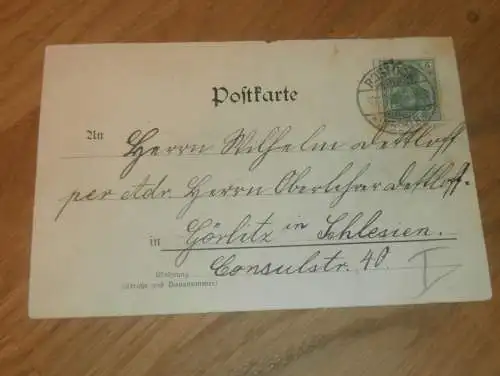 ROSTOCK
5
Postkarte
An Herrn Wilhelm Dettloff
per Adr. Herrn Oberlehrer Dettloff.
in Görlitz in Schlesien.
Wohnung Consulstr. 40.
(Straße und Hausnummer)
I